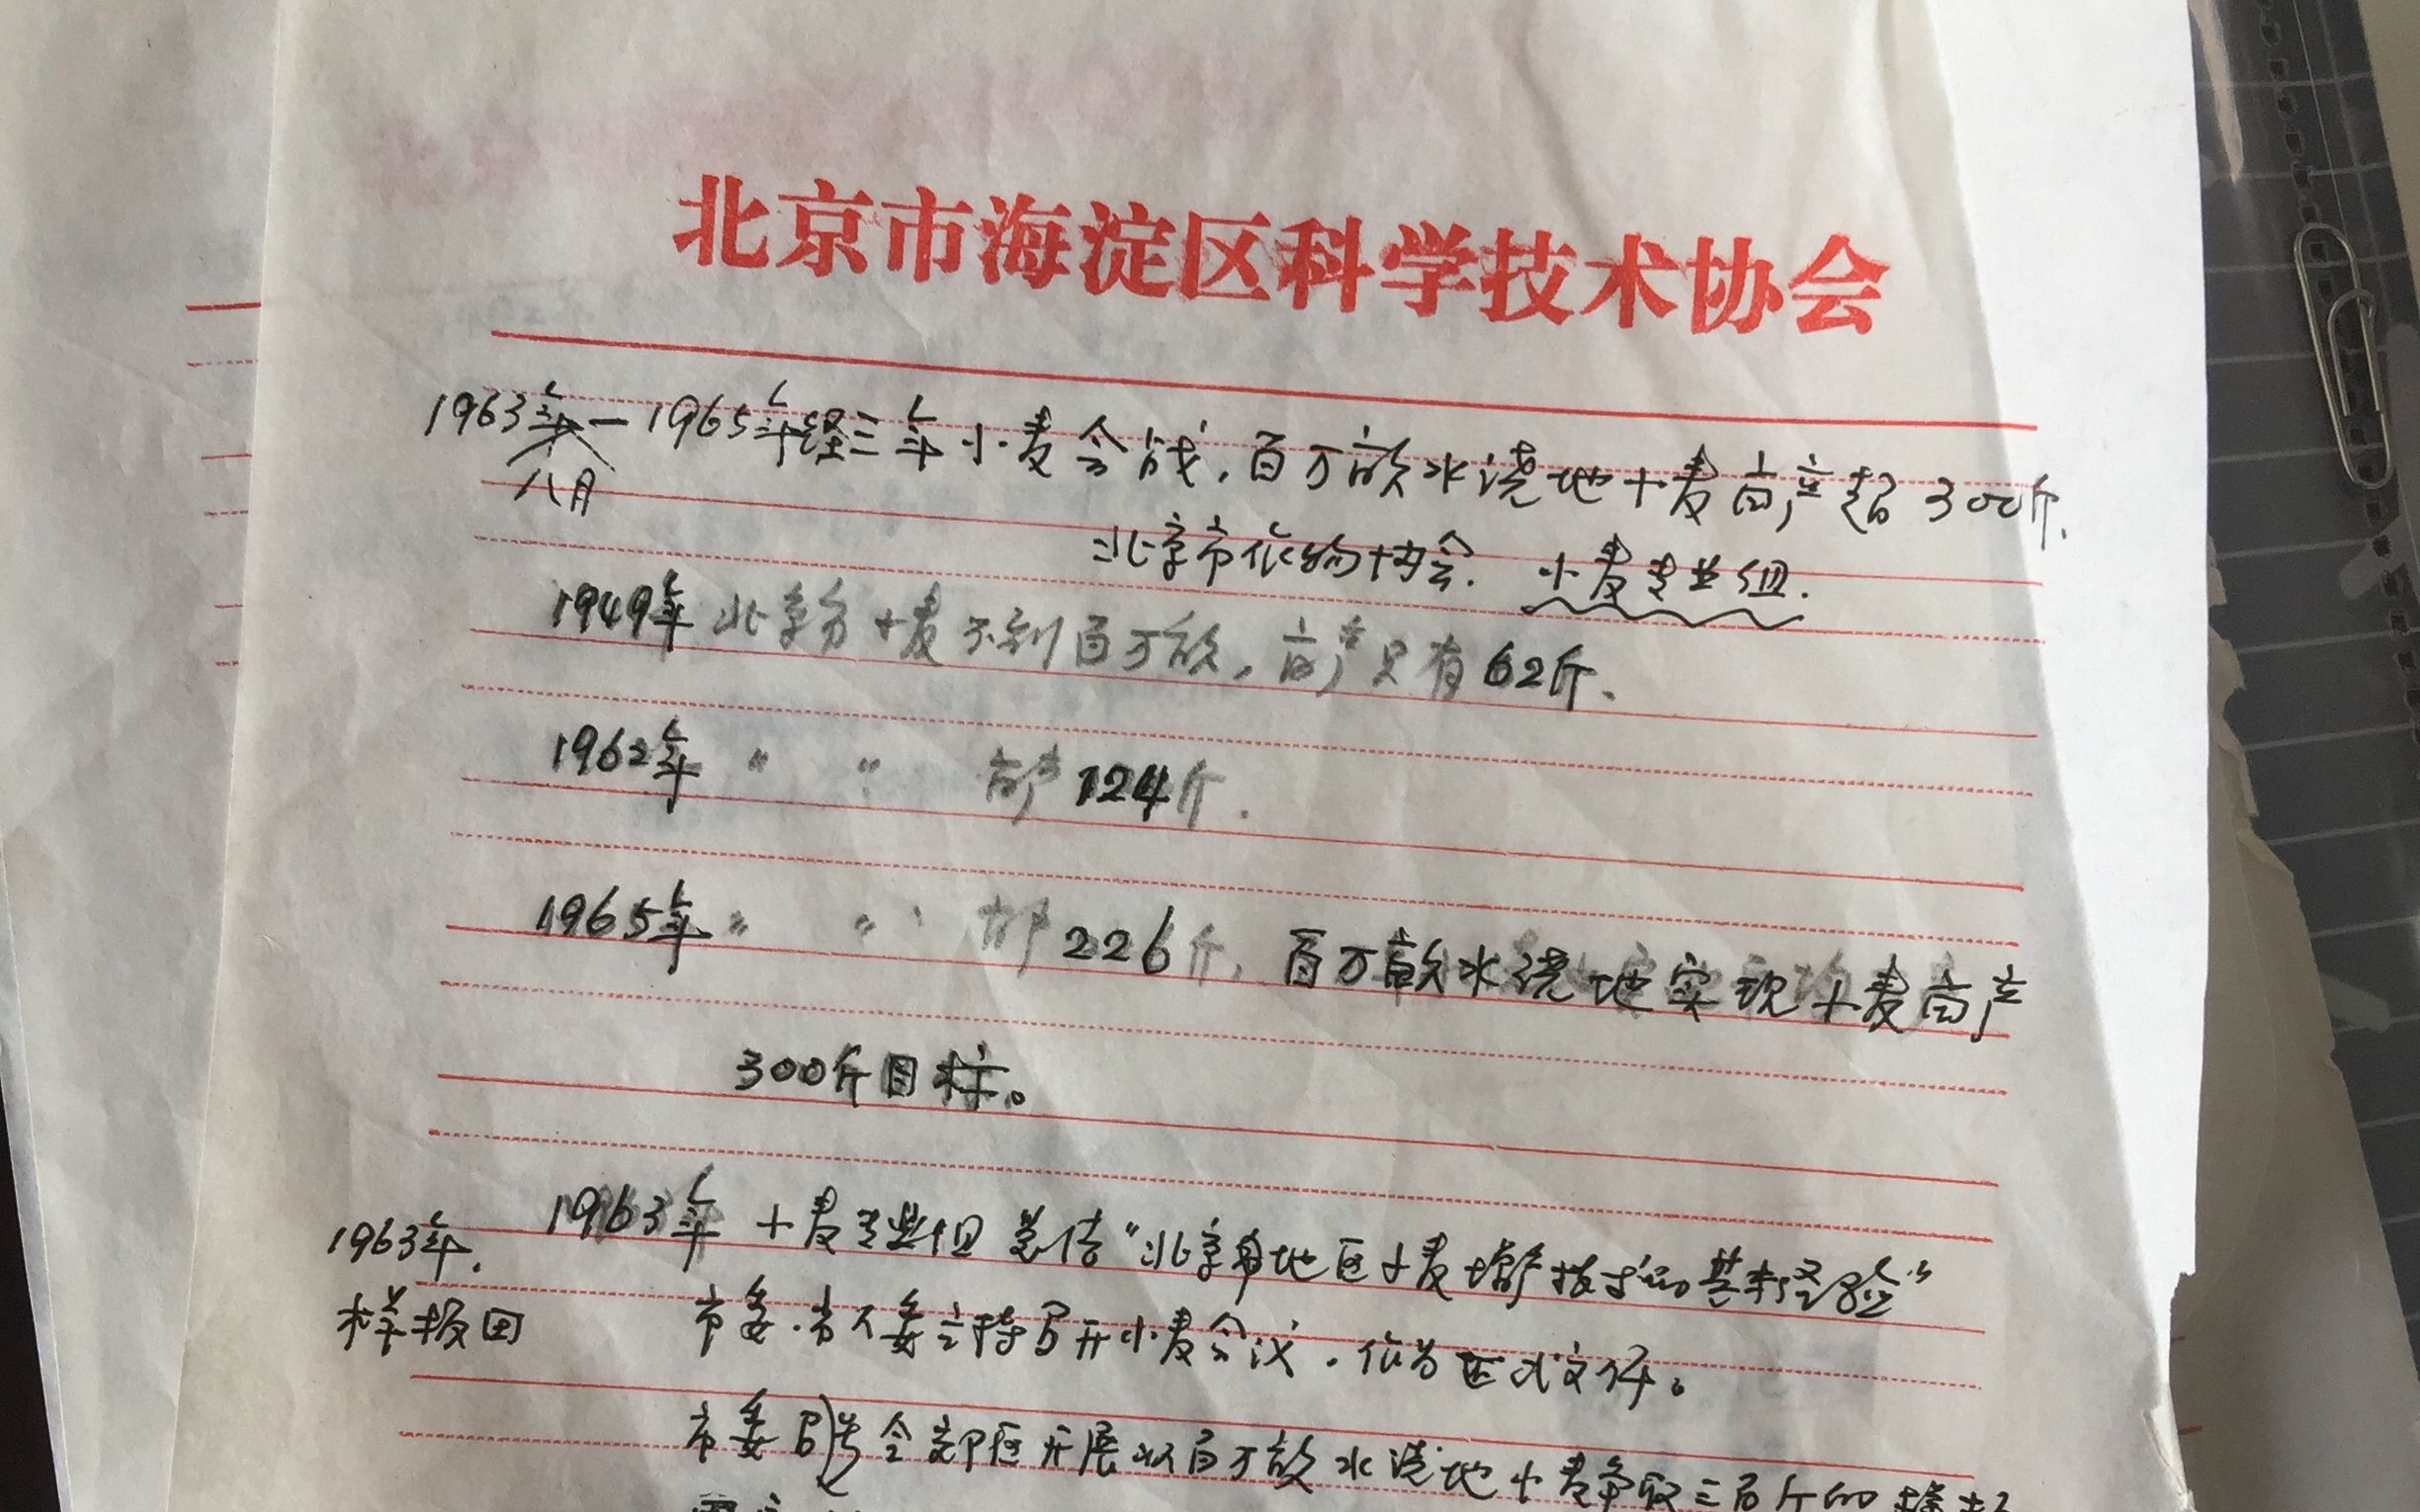 北京市海淀区科学技术协会
1963年—1965年经三年小麦会战,百万亩水浇地小麦亩产超300斤.
八月
北京市作物协会. 小麦专业组.
1949年 北京市小麦不到百万亩,亩产只有62斤、
1962年 〃 〃 亩产124斤.
1965年 〃 〃 亩产226斤, 百万亩水浇地实现小麦亩产
300斤目标。
1963年 小麦专业组 总结“北京市地区小麦增产技术的基本经验”
1963年.
样板田
市委.市人委主持召开小麦会议,作为正式文件。
市委号召全郊区开展以百万亩水浇地小麦争取三百斤的样板